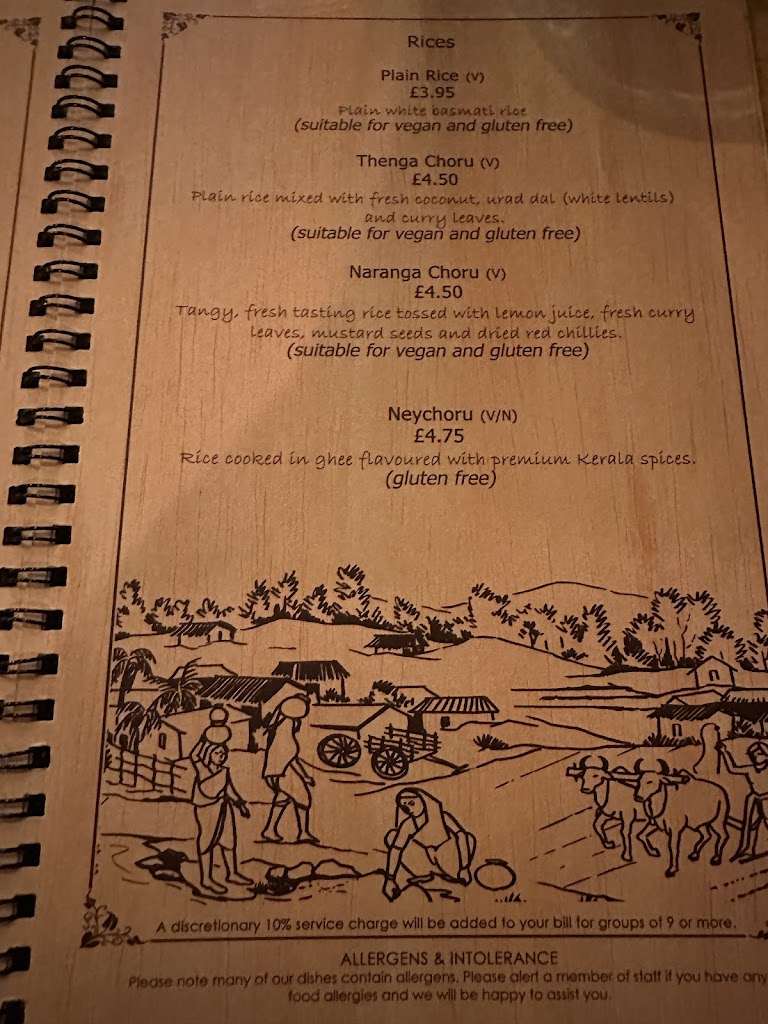 Rices
Plain Rice (V)
£3.95
Plain white basmati rice
(suitable for vegan and gluten free)
Thenga Choru (V)
£4.50
Plain rice mixed with fresh coconut, urad dal (white lentils)
and curry leaves.
(suitable for vegan and gluten free)
Naranga Choru (V)
£4.50
Tangy, fresh tasting rice tossed with lemon juice, fresh curry
leaves, mustard seeds and dried red chillies.
(suitable for vegan and gluten free)
Neychoru (V/N)
£4.75
Rice cooked in ghee flavoured with premium Kerala spices.
(gluten free)
A discretionary 10% service charge will be added to your bill for groups of 9 or more.
ALLERGENS & INTOLERANCE
Please note many of our dishes contain allergens. Please alert a member of staff if you have any
food allergies and we will be happy to assist you.